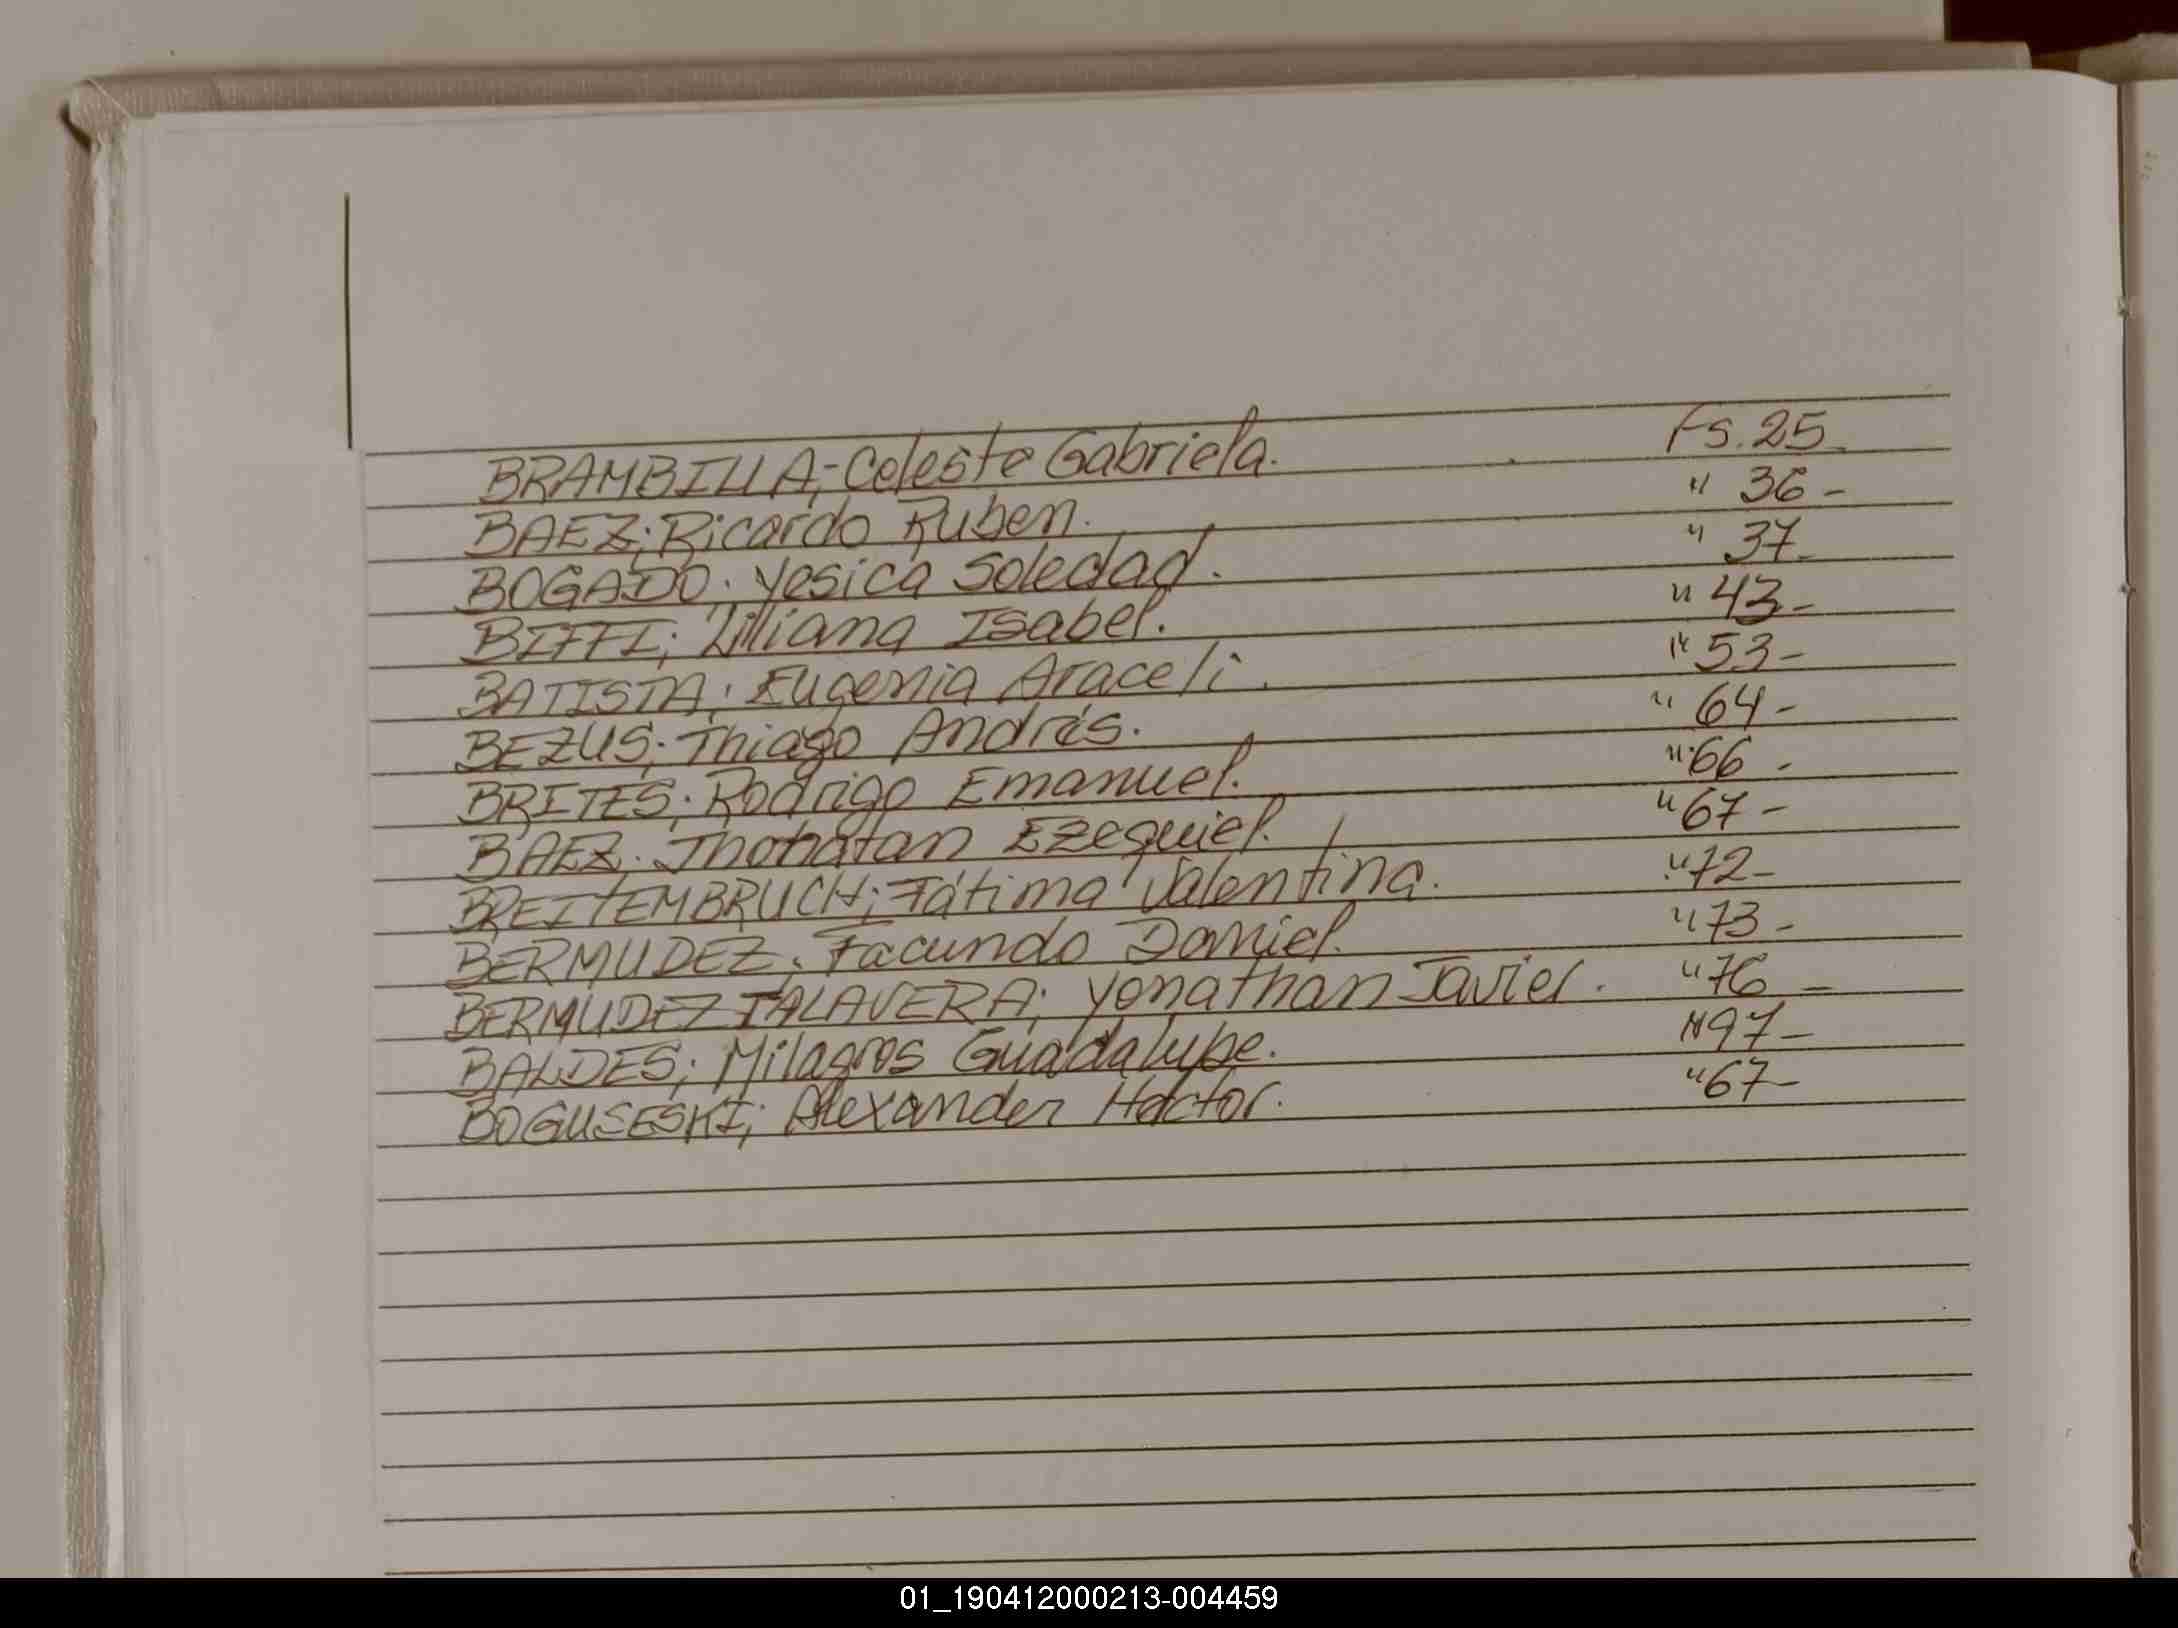 BRAMBILLA; Celeste Gabriela. Fs. 25-
BAEZ; Ricardo Ruben. " 36-
BOGADO; Yesica Soledad. " 37-
BIFFI; Liliana Isabel. " 43-
BATISTA; Eugenia Araceli. " 53-
BEZUS; Thiago Andrés. " 64-
BRITES; Rodrigo Emanuel. " 66-
BAEZ; Jhonatan Ezequiel. " 67-
BREITEMBRUCH; Fátima Valentina. " 72-
BERMUDEZ; Facundo Daniel. " 73-
BERMUDEZ TALAVERA; Yonathan Javier. " 76-
BALDES; Milagros Guadalupe. " 97-
BOGUSESKI; Alexander Héctor. " 67-
01_190412000213-004459